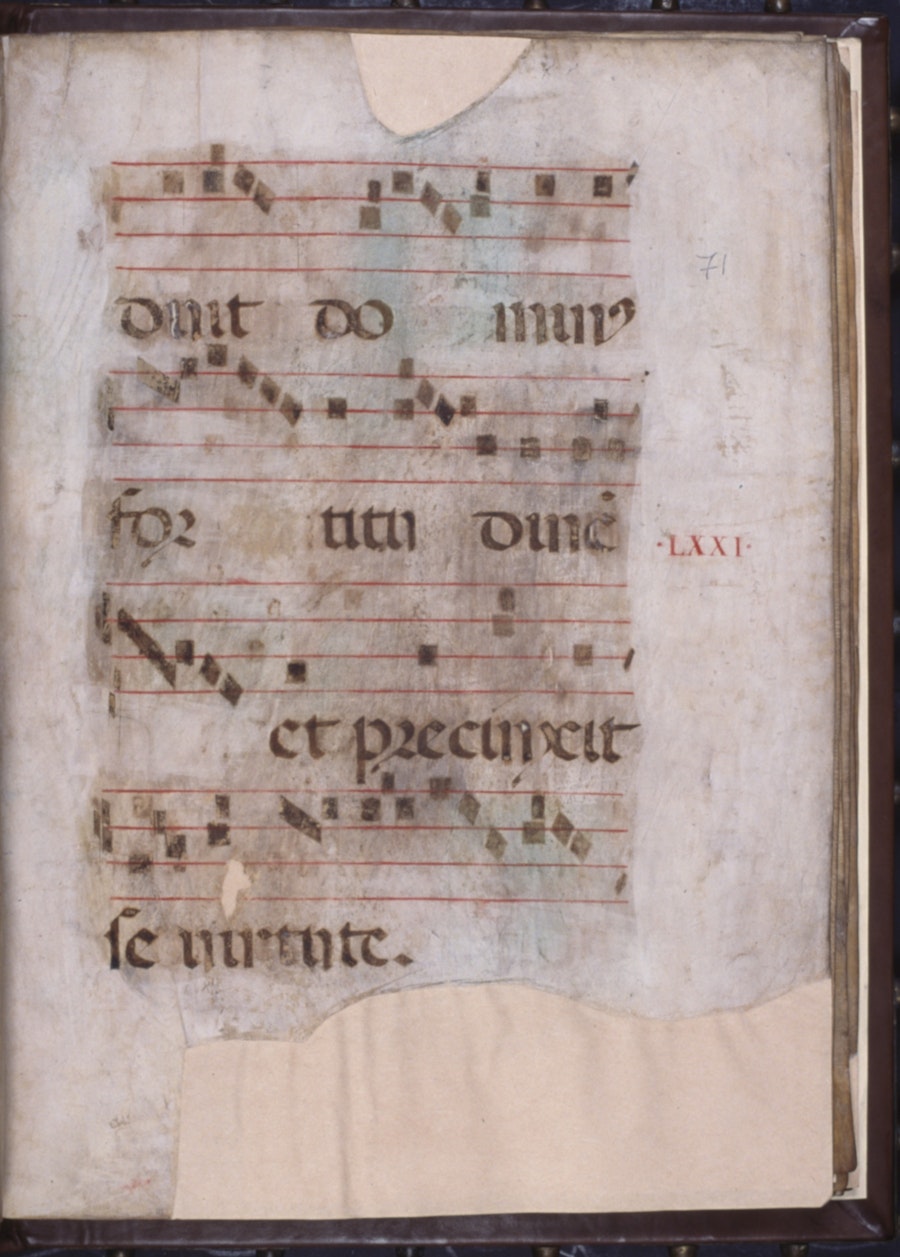 duit do minus
71
for titu dinē
·LXXI·
et precinxit
se uirtute.